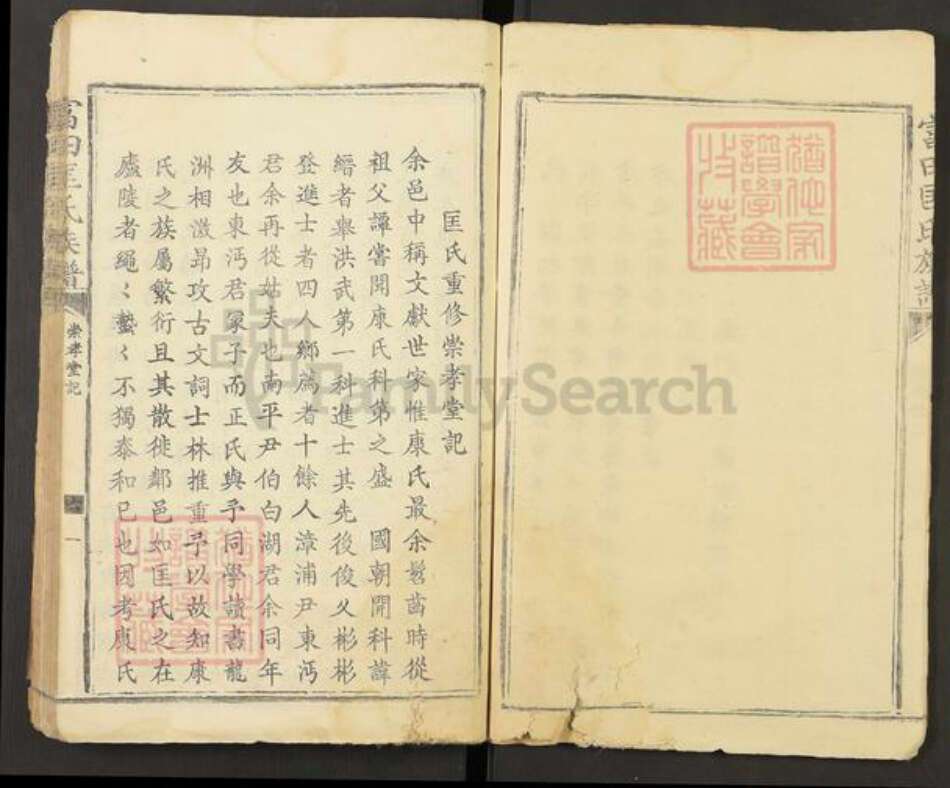 富田匡氏族譜
猶他家譜學會收藏
匡氏重修崇孝堂記
余邑中稱文獻世家惟康氏最余髫齒時從
祖父譚嘗聞康氏科第之盛　國朝開科諱
縉者舉洪武第一科進士其先後俊乂彬彬
登進士者四人鄉薦者十餘人漳浦尹東沔
君余再從姑夫也南平尹伯白湖君余同年
友也東沔君冢子而正氏與予同學讀書龍
洲相激昻攻古文詞士林推重予以故知康
氏之族屬繁衍且其散徙鄰邑如匡氏之在
廬陵者繩〻蟄〻不獨泰和已也因考康氏
猶他家譜學會收藏
富田匡氏族譜
崇孝堂記
一
FamilySearch